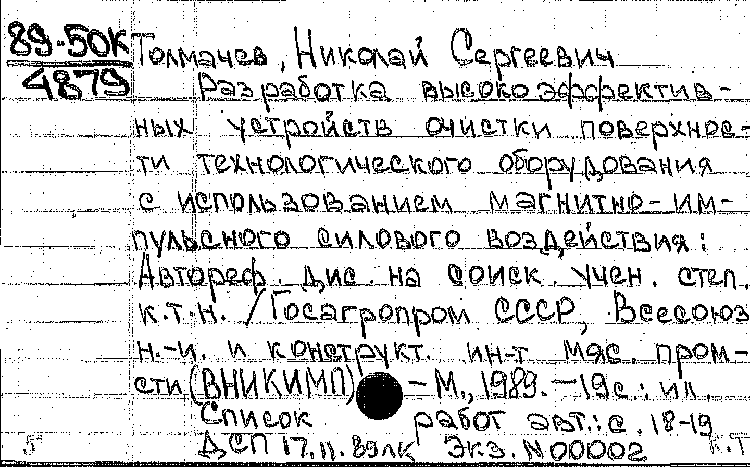 89-50К
4879
Толмачев, Николай Сергеевич
Разработка высокоэффектив-
ных устройств очистки поверхнос-
ти технологического оборудования
с использованием магнитно-им-
пульсного силового воздействия:
Автореф. дис. на соиск. учен. степ.
к.т.н. / Госагропром СССР, Всесоюз
н.-и. и конструкт. ин-т мяс. пром-
сти (ВНИКИМП) – М., 1989. – 19с.: ил.
Список работ авт.: с. 18-19
5 ДСП 17.11.89лк Экз. N 00002 К.Т